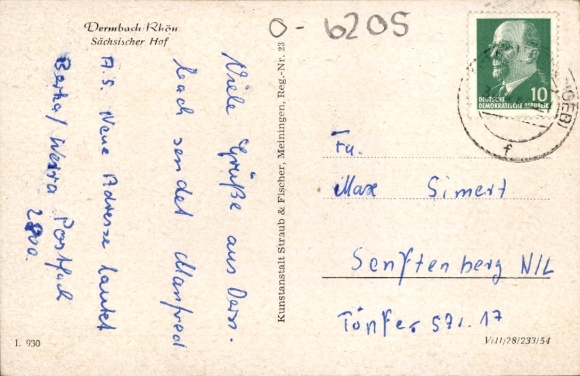 Dermbach/Rhön
Sächsischer Hof
O-6205
Viele Grüße aus Derm-
bach sendet Manfred
P.S. Neue Adresse lautet
Berka/Werra Postfach
2800.
Kunstanstalt Straub & Fischer, Meiningen, Reg.-Nr. 23
10
DEUTSCHE
DEMOKRATISCHE REPUBLIK
GEB)
f
Fa.
Max Simert
Senftenberg N/L
Töpfer Str. 17
I. 930
V/11/28/233/54